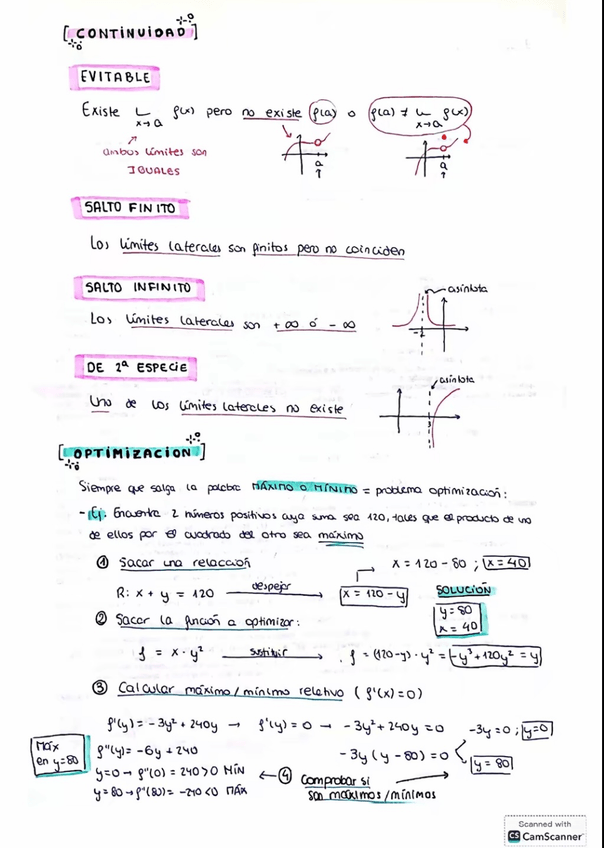 [CONTINUIDAD]
EVITABLE
Existe L f(x) pero no existe f(a) o f(a) ≠ L f(x)
x→a x→a
ambos límites son
IGUALES
a
a
SALTO FINITO
Los límites laterales son finitos pero no coinciden
SALTO INFINITO
asíntota
Los límites laterales son +∞ ó -∞
-2
DE 2ª ESPECIE
asíntota
Uno de los límites laterales no existe
3
[OPTIMIZACION]
Siempre que salga la palabra MÁXIMO O MÍNIMO = problema optimización:
- Ej. Encuentra 2 números positivos cuya suma sea 120, tales que el producto de uno
de ellos por el cuadrado del otro sea máximo
① Sacar una relacción
x = 120 - 80 ; x = 40
R: x + y = 120 despejar x = 120 - y
SOLUCIÓN
y = 80
x = 40
② Sacar la función a optimizar:
f = x · y² sustituir f = (120-y) · y² = -y³ + 120y² = y
③ Calcular máximo/mínimo relativo (f'(x) = 0)
f'(y) = -3y² + 240y → f'(y) = 0 → -3y² + 240y = 0
-3y = 0 ; y = 0
-3y (y - 80) = 0
y = 80
Máx
en y=80
f''(y) = -6y + 240
y=0 → f''(0) = 240 > 0 MÍN
y = 80 → f''(80) = -240 < 0 MÁX
④ Comprobar si
son máximos/mínimos
Scanned with
CS CamScanner